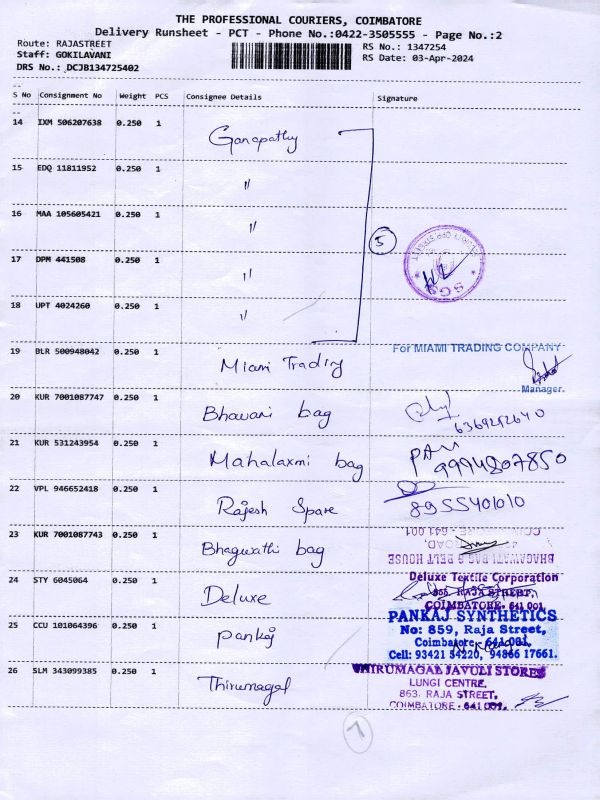 THE PROFESSIONAL COURIERS, COIMBATORE
Delivery Runsheet - PCT - Phone No.:0422-3505555 - Page No.:2
Route: RAJASTREET
RS No.: 1347254
Staff: GOKILAVANI
RS Date: 03-Apr-2024
DRS No.: DCJB134725402
S No Consignment No Weight PCS Consignee Details Signature
14 IXM 506207638 0.250 1 Ganapathy
15 EDQ 11811952 0.250 1 "
16 MAA 105605421 0.250 1 "
5
17 DPM 441508 0.250 1 "
SGS
18 UPT 4024260 0.250 1 "
19 BLR 500948042 0.250 1 Miami Trading For MIAMI TRADING COMPANY
Manager.
20 KUR 7001087747 0.250 1 Bhavani bag
6369292640
21 KUR 531243954 0.250 1 Mahalaxmi bag
9994807850
22 VPL 946652418 0.250 1 Rajesh Spare 8955401010
23 KUR 7001087743 0.250 1 Bhagwathi bag
BHAGAWATI BAG & BELT HOUSE
COIMBATORE - 641 001
24 STY 6045064 0.250 1 Deluxe Deluxe Textile Corporation
RAJA STREET,
COIMBATORE - 641 001.
25 CCU 101064396 0.250 1 pankaj PANKAJ SYNTHETICS
No: 859, Raja Street,
Coimbatore - 641 001.
Cell: 93421 54220, 94866 17661.
26 SLM 343099385 0.250 1 Thirumagal THIRUMAGAL JAVULI STORES
LUNGI CENTRE,
863, RAJA STREET,
COIMBATORE - 641 001.
7